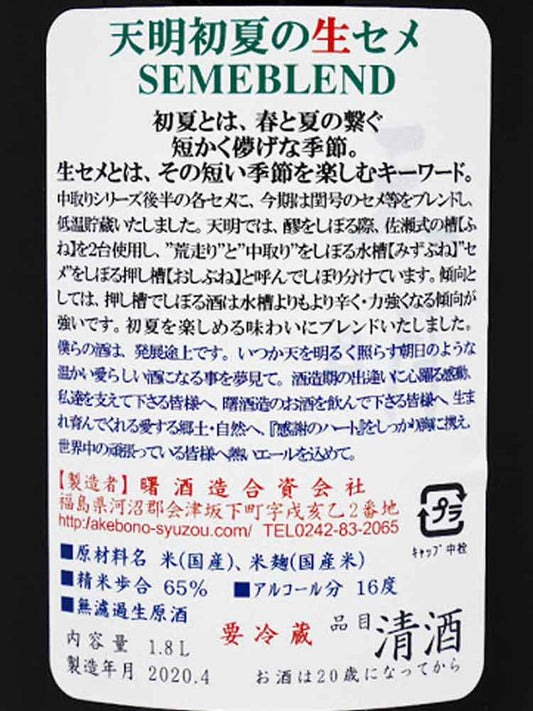 天明初夏の生セメ
SEMEBLEND
初夏とは、春と夏の繋ぐ
短かく儚げな季節。
生セメとは、その短い季節を楽しむキーワード。
中取りシリーズ後半の各セメに、今期は閏号のセメ等をブレンドし、
低温貯蔵いたしました。天明では、醪をしぼる際、佐瀬式の槽【ふ
ね】を2台使用し、”荒走り”と”中取り”をしぼる水槽【みずぶね】”セ
メ”をしぼる押し槽【おしぶね】と呼んでしぼり分けています。傾向と
しては、押し槽でしぼる酒は水槽よりもより辛く・力強くなる傾向が
強いです。初夏を楽しめる味わいにブレンドいたしました。
僕らの酒は、発展途上です。いつか天を明るく照らす朝日のような
温かい愛らしい酒になる事を夢見て。酒造期の出逢いに心躍る感動、
私達を支えて下さる皆様へ、曙酒造のお酒を飲んで下さる皆様へ、生ま
れ育んでくれる愛する郷土・自然へ、『感謝のハート』をしっかり胸に携え、
世界中の頑張っている皆様へ熱いエールを込めて。
【製造者】曙酒造合資会社
福島県河沼郡会津坂下町字戌亥乙2番地
http://akebono-syuzou.com/ TEL0242-83-2065
プラ
キャップ 中栓
■原材料名 米(国産)、米麹(国産米)
■精米歩合 65% ■アルコール分 16度
■無濾過生原酒
内容量 1.8L 要冷蔵 品目 清酒
製造年月 2020.4 お酒は20歳になってから